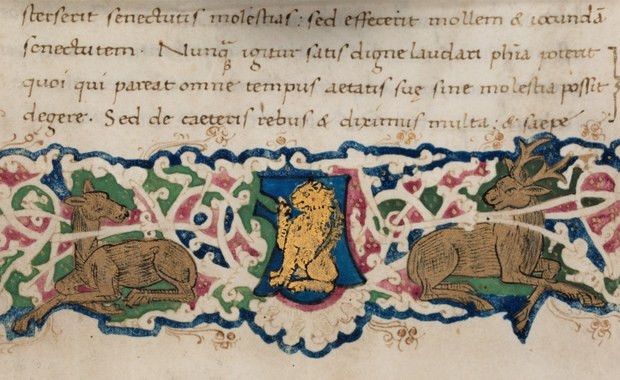 sterserit senectutis molestias: sed effecerit mollem & iocundā
senectutem. Nunq̄ igitur satis digne laudari phīa poterit
quoi qui pareat omne tempus aetatis suę sine molestia possit
degere. Sed de caeteris rebus & diximus multa: & saepe